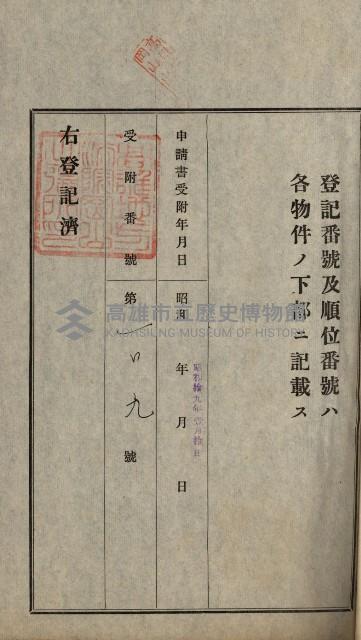 登記番號及順位番號ハ
各物件ノ下部ニ記載ス
申請書受附年月日 昭和 年 月 日
昭和拾九年壹月拾日
受附番號 第 一〇九 號
右登記濟
高雄市立歷史博物館
KAOHSIUNG MUSEUM OF HISTORY